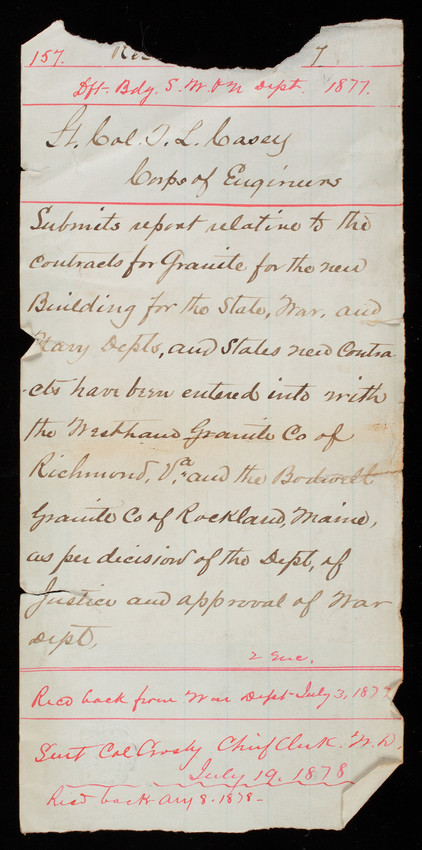 157. 7
Dft. Bdg. S. W. & N Dept. 1877.
Lt. Col. T. L. Casey
Corps of Engineers
Submits report relative to the
contracts for Granite for the new
Building for the State, War, and
Navy Depts, and States new Contra
-cts have been entered into with
the Westham Granite Co of
Richmond, Va. and the Bodwell
Granite Co of Rockland, Maine,
as per decision of the Dept, of
Justice and approval of War
Dept,
2 Enc.
Recd back from War Dept July 3, 187
Sent Col Crosby Chief Clerk. W. D.
July 19. 1878
Recd back Aug 8. 1878-